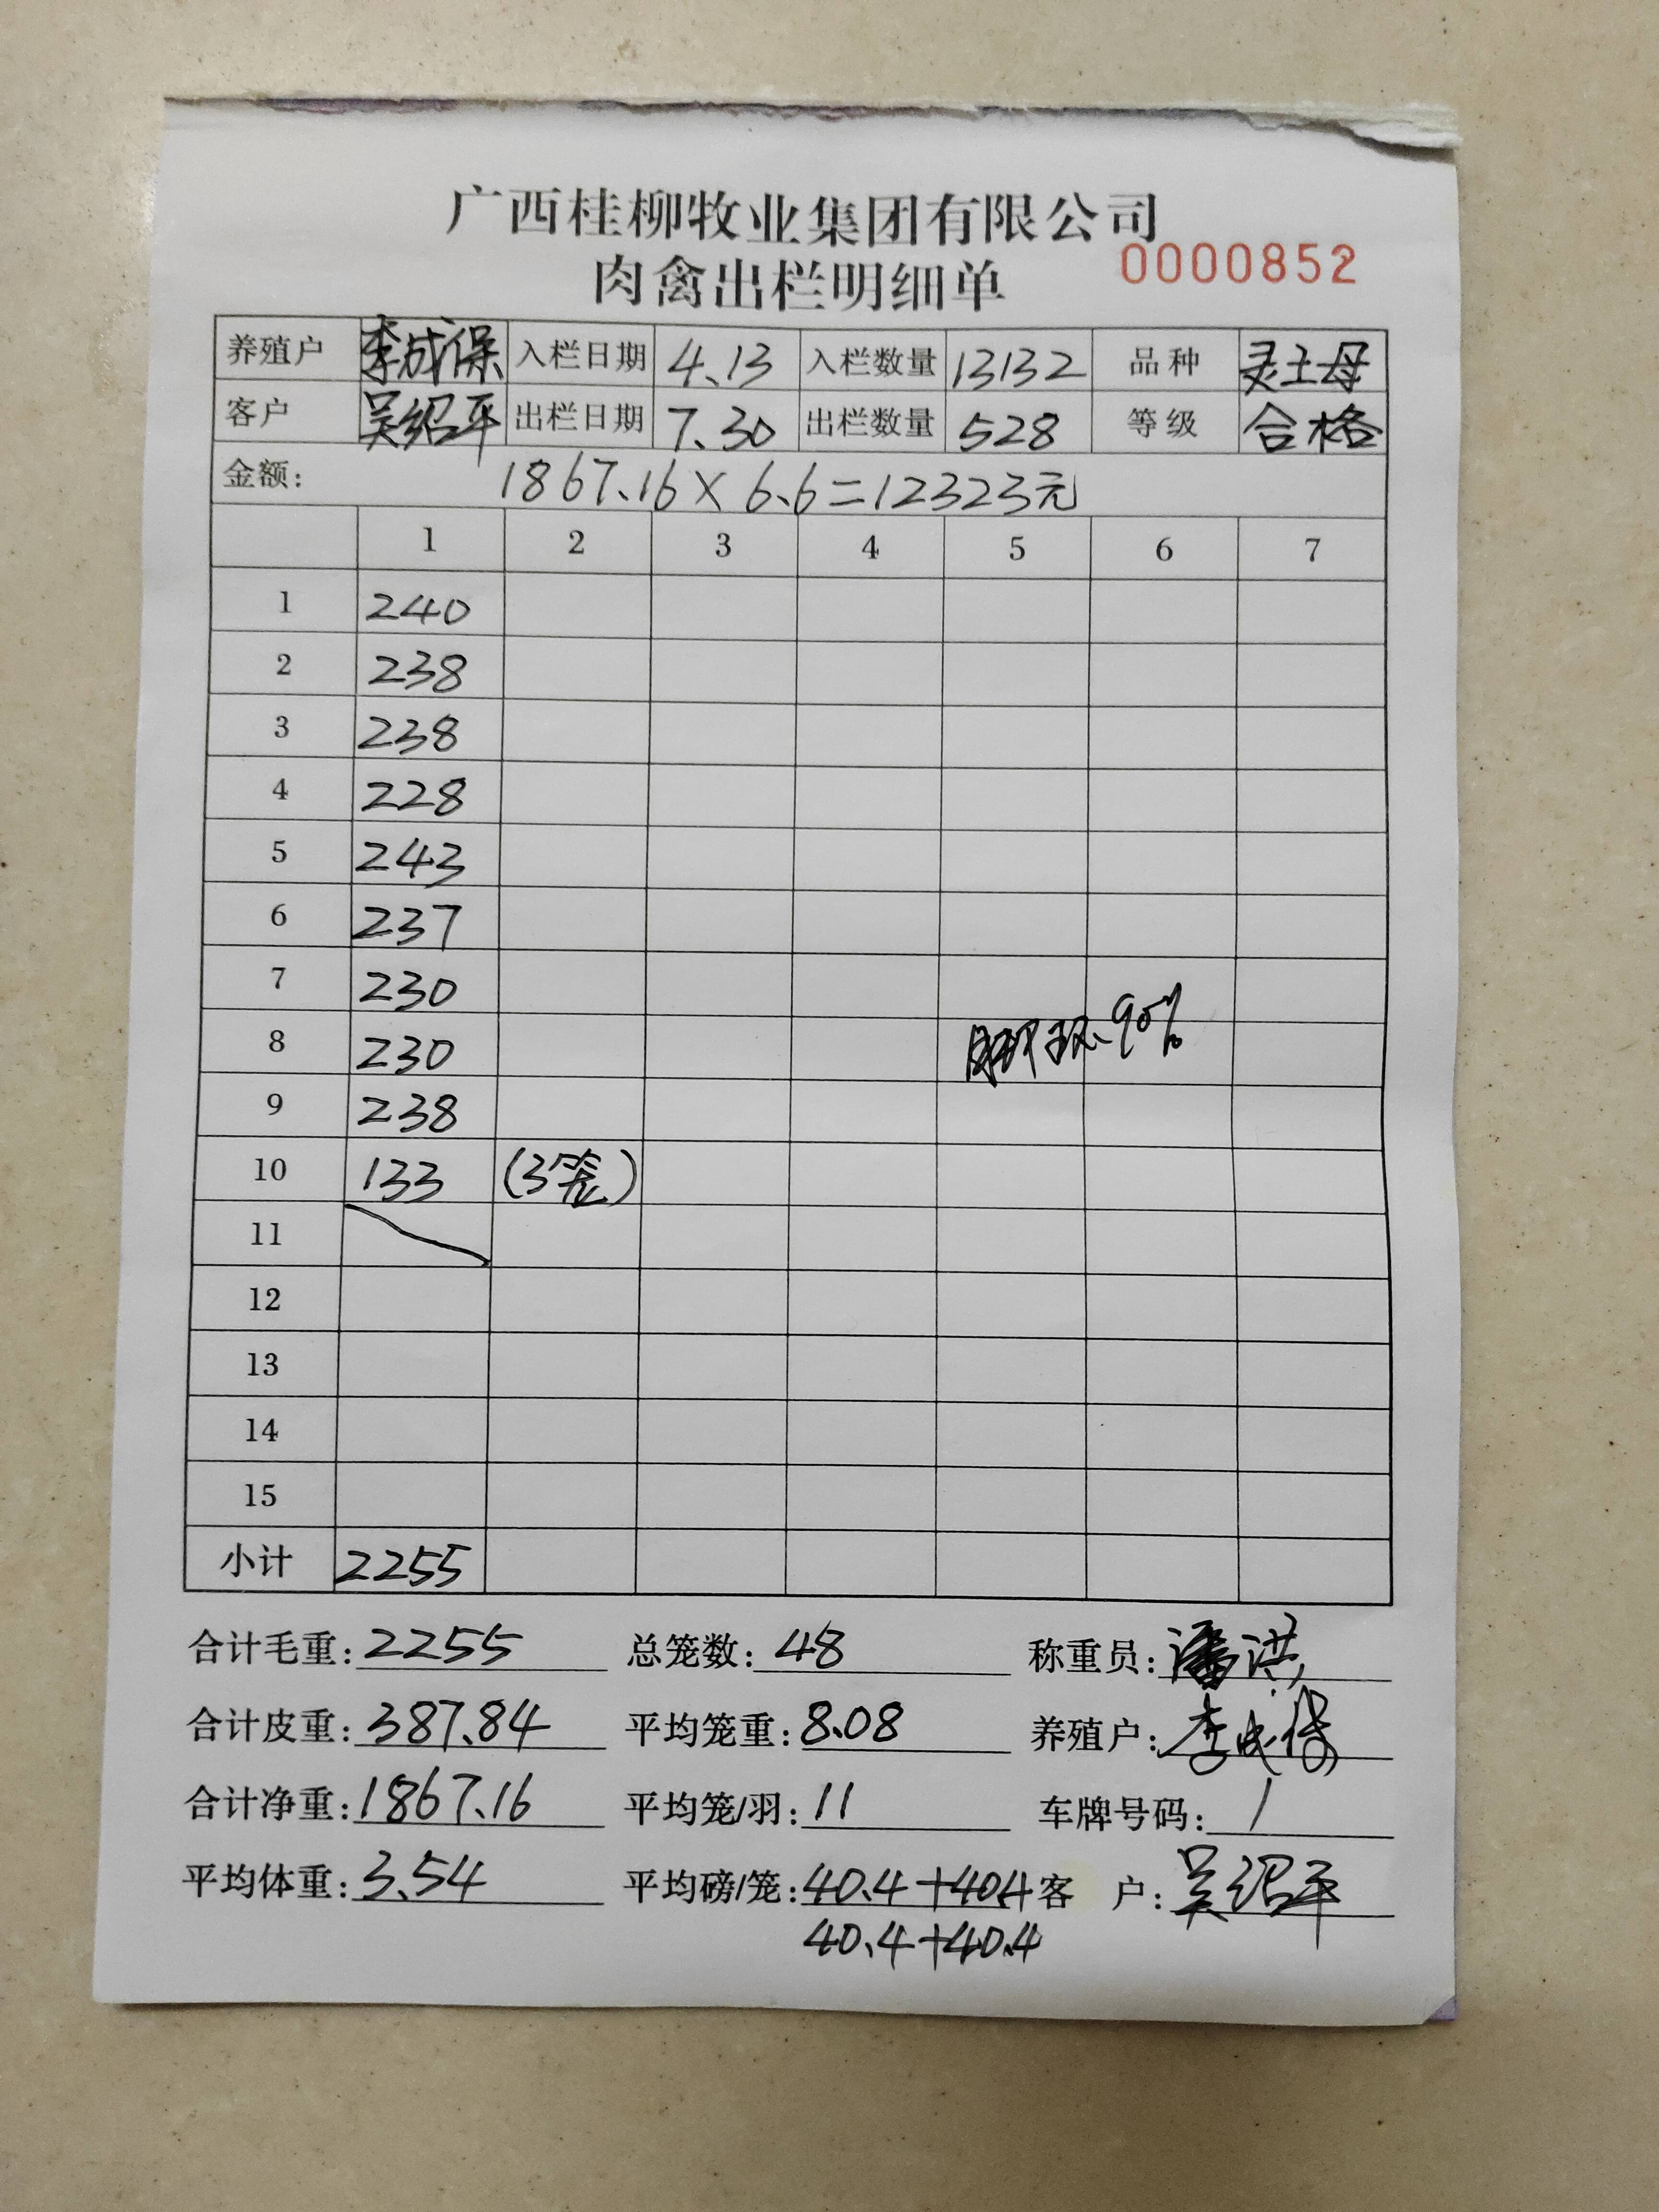 广西桂柳牧业集团有限公司
肉禽出栏明细单 0000852
养殖户 李成保 入栏日期 4.13 入栏数量 13132 品种 灵土母
客户 吴绍平 出栏日期 7.30 出栏数量 528 等级 合格
金额: 1867.16×6.6=12323元
1 2 3 4 5 6 7
1 240
2 238
3 238
4 228
5 243
6 237
7 230
8 230 90%
9 238
10 133 (3笼)
11
12
13
14
15
小计 2255
合计毛重:2255 总笼数:48 称重员:潘洪
合计皮重:387.84 平均笼重:8.08 养殖户:李成保
合计净重:1867.16 平均笼/羽:11 车牌号码:/
平均体重:3.54 平均磅/笼:40.4+40.4 客户:吴绍平
40.4+40.4